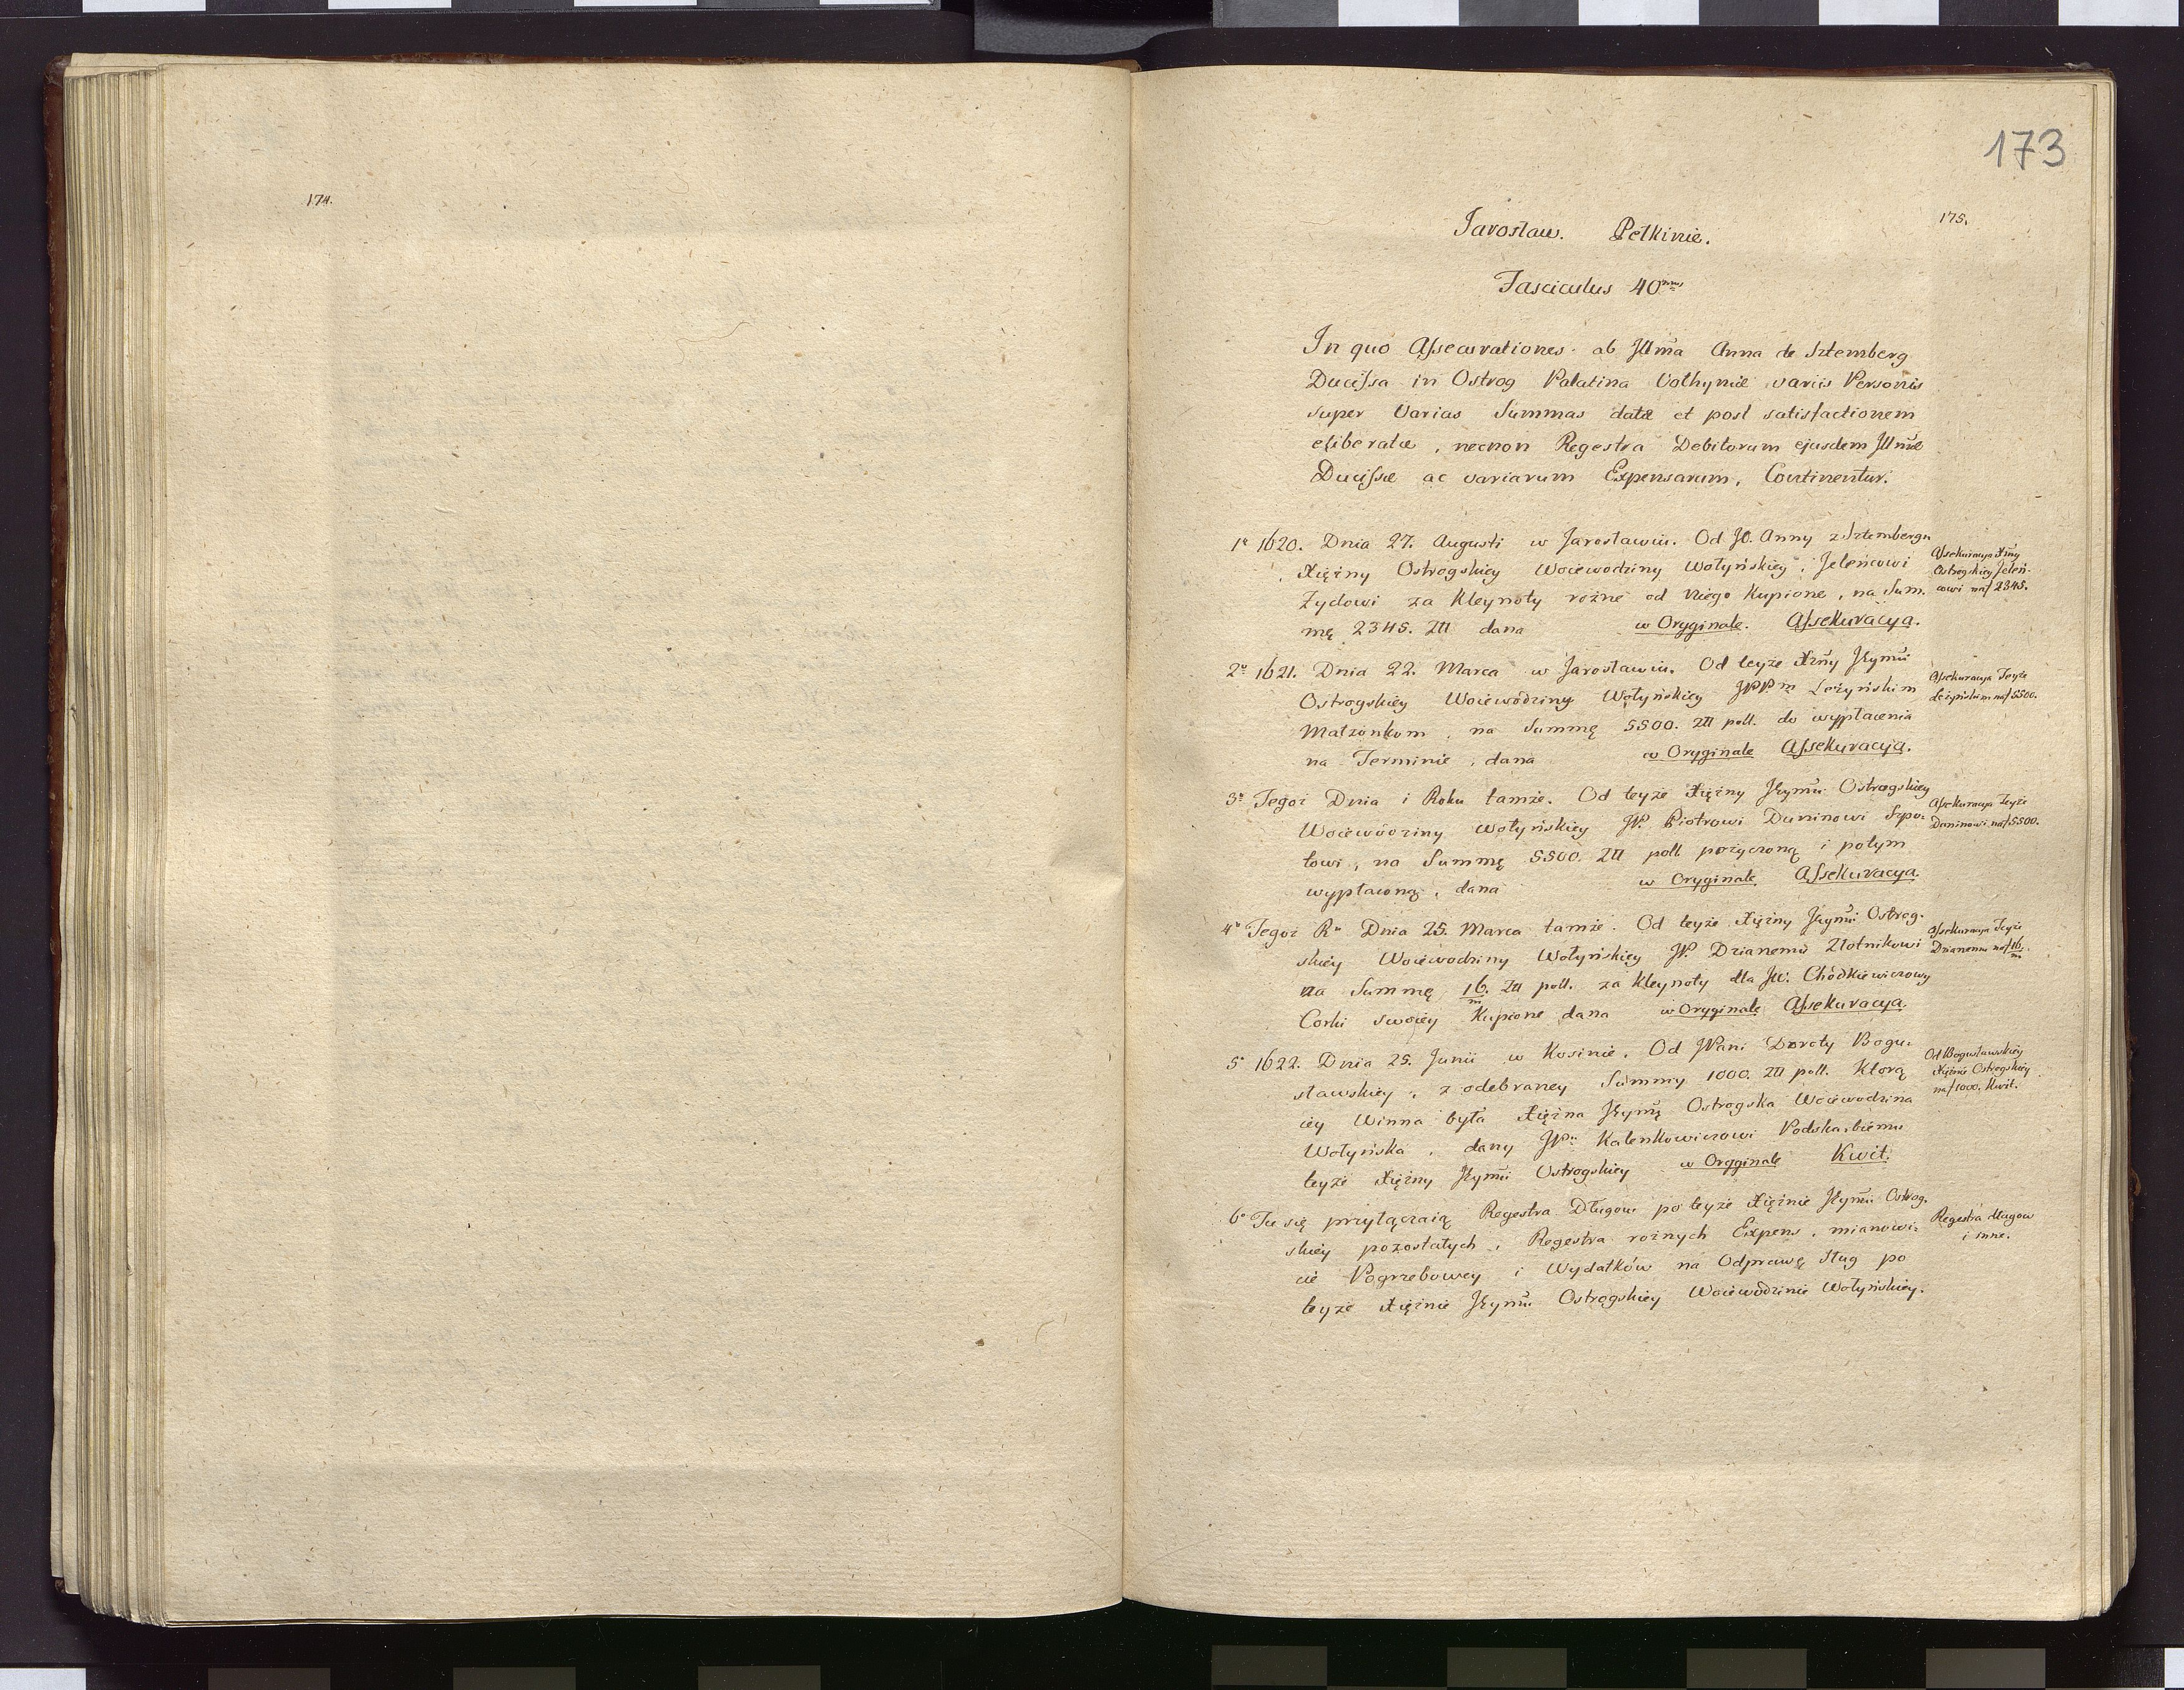 174.
173
175.
Jarosław. Pełkinie.
Fasciculus 40mus
In quo Assecurationes ab Illma Anna de Sztemberg
Ducissa in Ostrog Palatina Volhyniæ variis Personis
super Varias Summas datæ et post satisfactionem
eliberatæ, necnon Regestra Debitorum ejusdem Illmæ
Ducissæ ac variarum Expensarum, Continentur.
1º 1620. Dnia 27. Augusti w Jarosławiu. Od JO. Anny z Sztemberga
Xiężny Ostrogskiey Woiewodziny Wołyńskiey, Jeleńcowi
Żydowi za Kleynoty rożne od Niego Kupione, na Sum.
mę 2345. Zll dana w Oryginale. Assekuracya.
Assekuracya Xżny
Ostrogskiey Jeleń-
cowi na f 2345.
2º 1621. Dnia 22. Marca w Jarosławiu. Od teyże Xżny Jeymći
Ostrogskiey Woiewodziny Wołyńskiey JPPm Leżyńskim
Małżonkom, na Summę 5500. Zll poll. do wypłacenia
na Terminie, dana w Oryginale Assekuracya.
Assekuracya Teyże
Leżyńskim na f 5500.
3º Tegoż Dnia i Roku tamże. Od teyże Xiężny Jeymći Ostrogskiey
Woiewodziny Wołyńskiey JP. Piotrowi Duninowi Szpo:
towi, na Summę 5500. Zll poll. pożyczoną i potym
wypłaconą, dana w Oryginale Assekuracya
Assekuracya Teyże
Duninowi na f 5500.
4º Tegoż Rº Dnia 25. Marca tamże. Od teyże Xiężny Jeymći Ostrog-
skiey Woiewodziny Wołyńskiey JP. Dzianemu Złotnikowi
na Summę 16/m Zll poll. za Kleynoty dla JW. Chodkiewiczowy
Corki swoiey Kupione dana w Oryginale Assekuracya.
Assekuracya Teyże
Dzianemu na f 16/m
5º 1622. Dnia 25. Junii w Kosinie. Od JPani Doroty Bogu:
sławskiey, z odebraney Summy 1000. Zll poll. Ktorą
iey Winna była Xiężna Jeymć Ostrogska Woiewodzina
Wołyńska, dany JPu Kalenkowiczowi Podskarbiemu
teyże Xiężny Jeymći Ostrogskiey w Oryginale Kwit.
Od Bogusławskiey
Xiężnie Ostrogskiey
na f 1000. Kwit.
6º Tu się przyłączaią Regestra Długow po teyże Xiężnie Jeymći Ostrog.
skiey pozostałych, Regestra rożnych Expens, mianowi:
cie Pogrzebowey i Wydatków na Odprawę Sług po
teyże Xiężnie Jeymći Ostrogskiey Woiewodzinie Wołyńskiey.
Regestra długow
i inne.